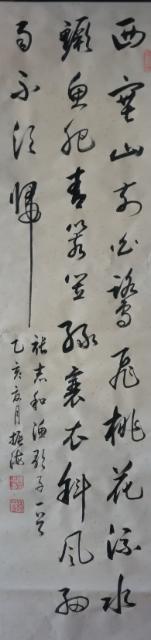 西塞山前白鹭飞桃花流水
鳜鱼肥青箬笠绿蓑衣斜风细
雨不须归
张志和渔歌子一首
乙亥夏月振海